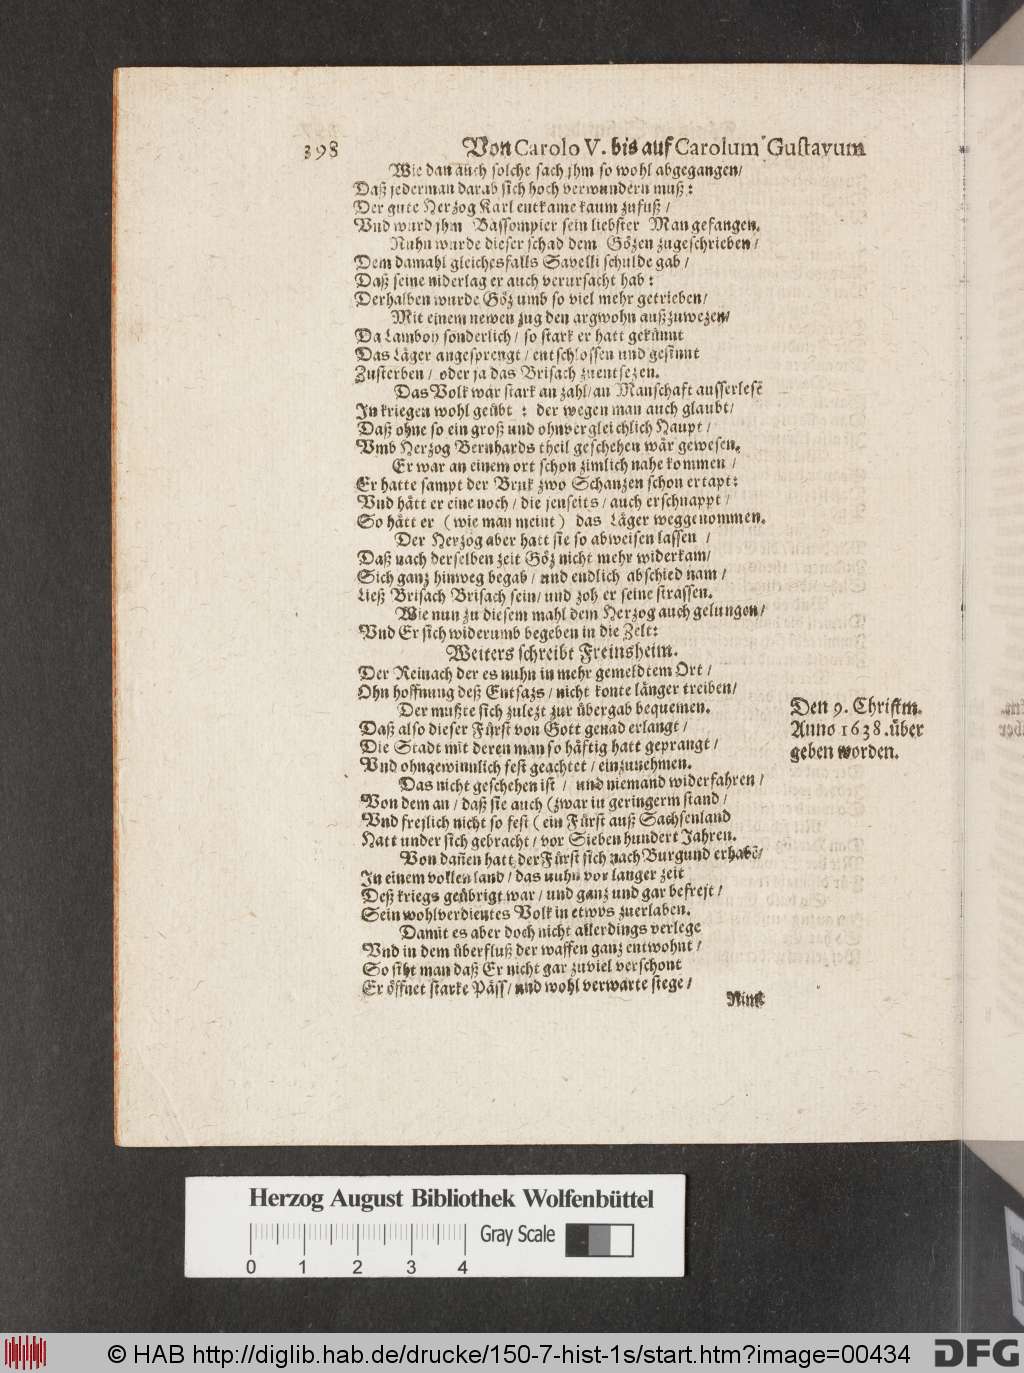 398 Von Carolo V. bis auf Carolum Gustavum
Wie dan auch solche sach jhm so wohl abgegangen/
Daß jederman darab sich hoch verwundern muß:
Der gute Herzog Karl entkame kaum zufuß /
Vnd ward jhm Bassompier sein liebster Man gefangen.
Nuhn wurde dieser schad dem Gözen zugeschrieben /
Dem damahl gleichesfalls Savelli schulde gab /
Daß seine niderlag er auch verursacht hab:
Derhalben wurde Göz umb so viel mehr getrieben/
Mit einem newen zug den argwohn außzuwezen/
Da Lamboy sonderlich / so stark er hatt gekünnt
Das Läger angesprengt / entschlossen und gesinnt
Zusterben / oder ja das Brisach zuentsezen.
Das Volk war stark an zahl/an Manschaft ausserlesẽ
In kriegen wohl geübt : der wegen man auch glaubt/
Daß ohne so ein groß und ohnvergleichlich Haupt /
Vmb Herzog Bernhards theil geschehen wär gewesen.
Er war an einem ort schon zimlich nahe kommen /
Er hatte sampt der Bruk zwo Schanzen schon ertapt:
Vnd hätt er eine noch / die jenseits / auch erschnappt /
So hätt er ( wie man meint ) das Läger weggenommen.
Der Herzog aber hatt sie so abweisen lassen /
Daß nach derselben zeit Göz nicht mehr widerkam/
Sich ganz hinweg begab / und endlich abschied nam /
Ließ Brisach Brisach sein/ und zoh er seine strassen.
Wie nun zu diesem mahl dem Herzog auch gelungen/
Vnd Er sich widerumb begeben in die Zelt:
Weiters schreibt Freinsheim.
Der Reinach der es nuhn in mehr gemeldtem Ort /
Ohn hoffnung deß Entsazs / nicht konte länger treiben/
Der mußte sich zulezt zur übergab bequemen.
Daß also dieser Fürst von Gott genad erlangt /
Die Stadt mit deren man so häftig hatt geprangt /
Vnd ohngewinnlich fest geachtet / einzunehmen.
Den 9. Christm.
Anno 1638. über
geben worden.
Das nicht geschehen ist / und niemand widerfahren /
Von dem an / daß sie auch (zwar in geringerm stand /
Vnd frejlich nicht so fest ( ein Fürst auß Sachsenland
Hatt under sich gebracht / vor Sieben hundert Jahren.
Von dañen hatt der Fürst sich nach Burgund erhabẽ/
In einem vollen land / das nuhn vor langer zeit
Deß kriegs geübrigt war / und ganz und gar befrejt /
Sein wohlverdientes Volk in etwys zuerlaben.
Damit es aber doch nicht allerdings verlege
Vnd in dem überfluß der waffen ganz entwohnt /
So siht man daß Er nicht gar zuviel verschont
Er öffnet starke Päss / und wohl verwarte stege /
Nimt
Herzog August Bibliothek Wolfenbüttel
Gray Scale
0 1 2 3 4
© HAB http://diglib.hab.de/drucke/150-7-hist-1s/start.htm?image=00434
DFG